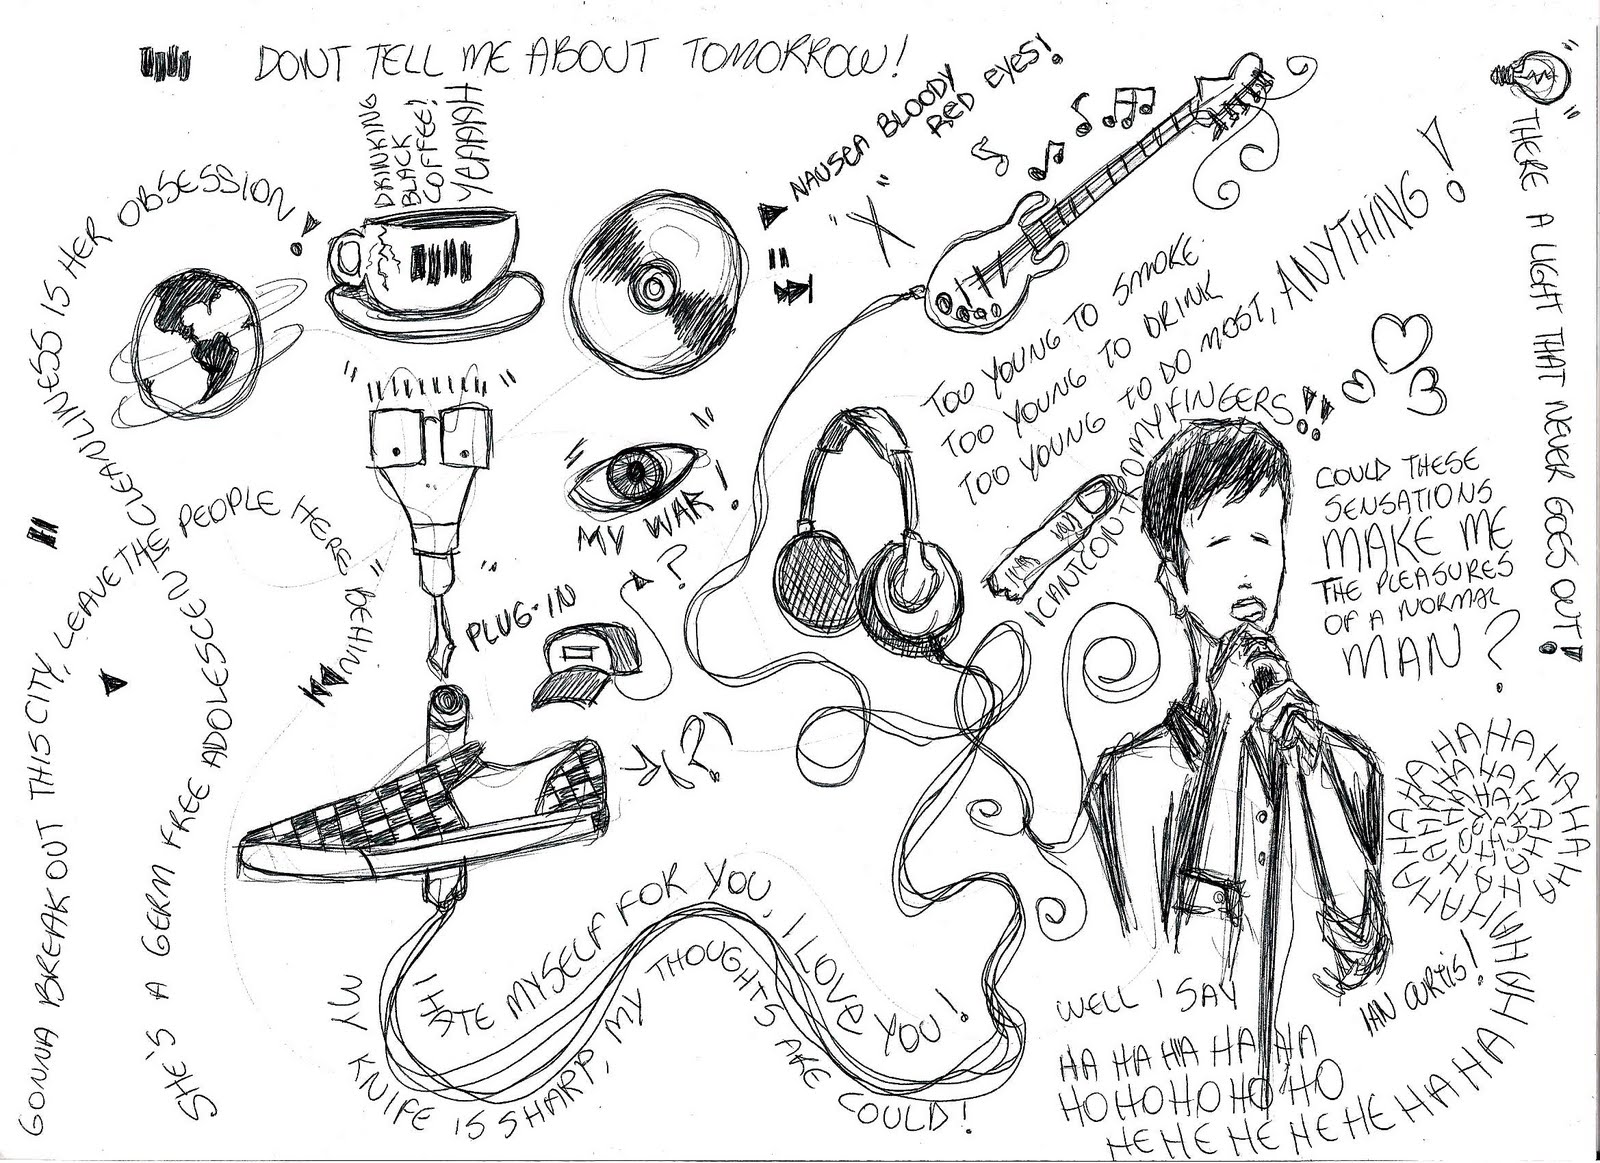 DONT TELL ME ABOUT TOMORROW!
DRINKING
BLACK
COFFEE!
YEAAAH
NAUSEA BLOODY
RED EYES!
"X"
CLEANLINESS IS HER OBSESSION!
SHE'S A GERM FREE ADOLESCENT
GONNA BREAK OUT THIS CITY, LEAVE THE PEOPLE HERE BEHIN"
MY WAR!
?
PLUG-IN
TOO YOUNG TO SMOKE
TOO YOUNG TO DRINK
TOO YOUNG TO DO MOST, ANYTHING!
I CANT CONT OMYFINGERS!!
"THERE A LIGHT THAT NEVER GOES OUT!
COULD THESE
SENSATIONS
MAKE ME
THE PLEASURES
OF A NORMAL
MAN?
I HATE MYSELF FOR YOU, I LOVE YOU!
MY KNIFE IS SHARP, MY THOUGHTS ARE COULD!
IAN CURTIS!
WELL I SAY
HA HA HA HA HA HA
HO HO HO HO HO
HE HE HE HE HE HA HA HA HA HA HA HA HA HA HA HA HA HA HA HA HA